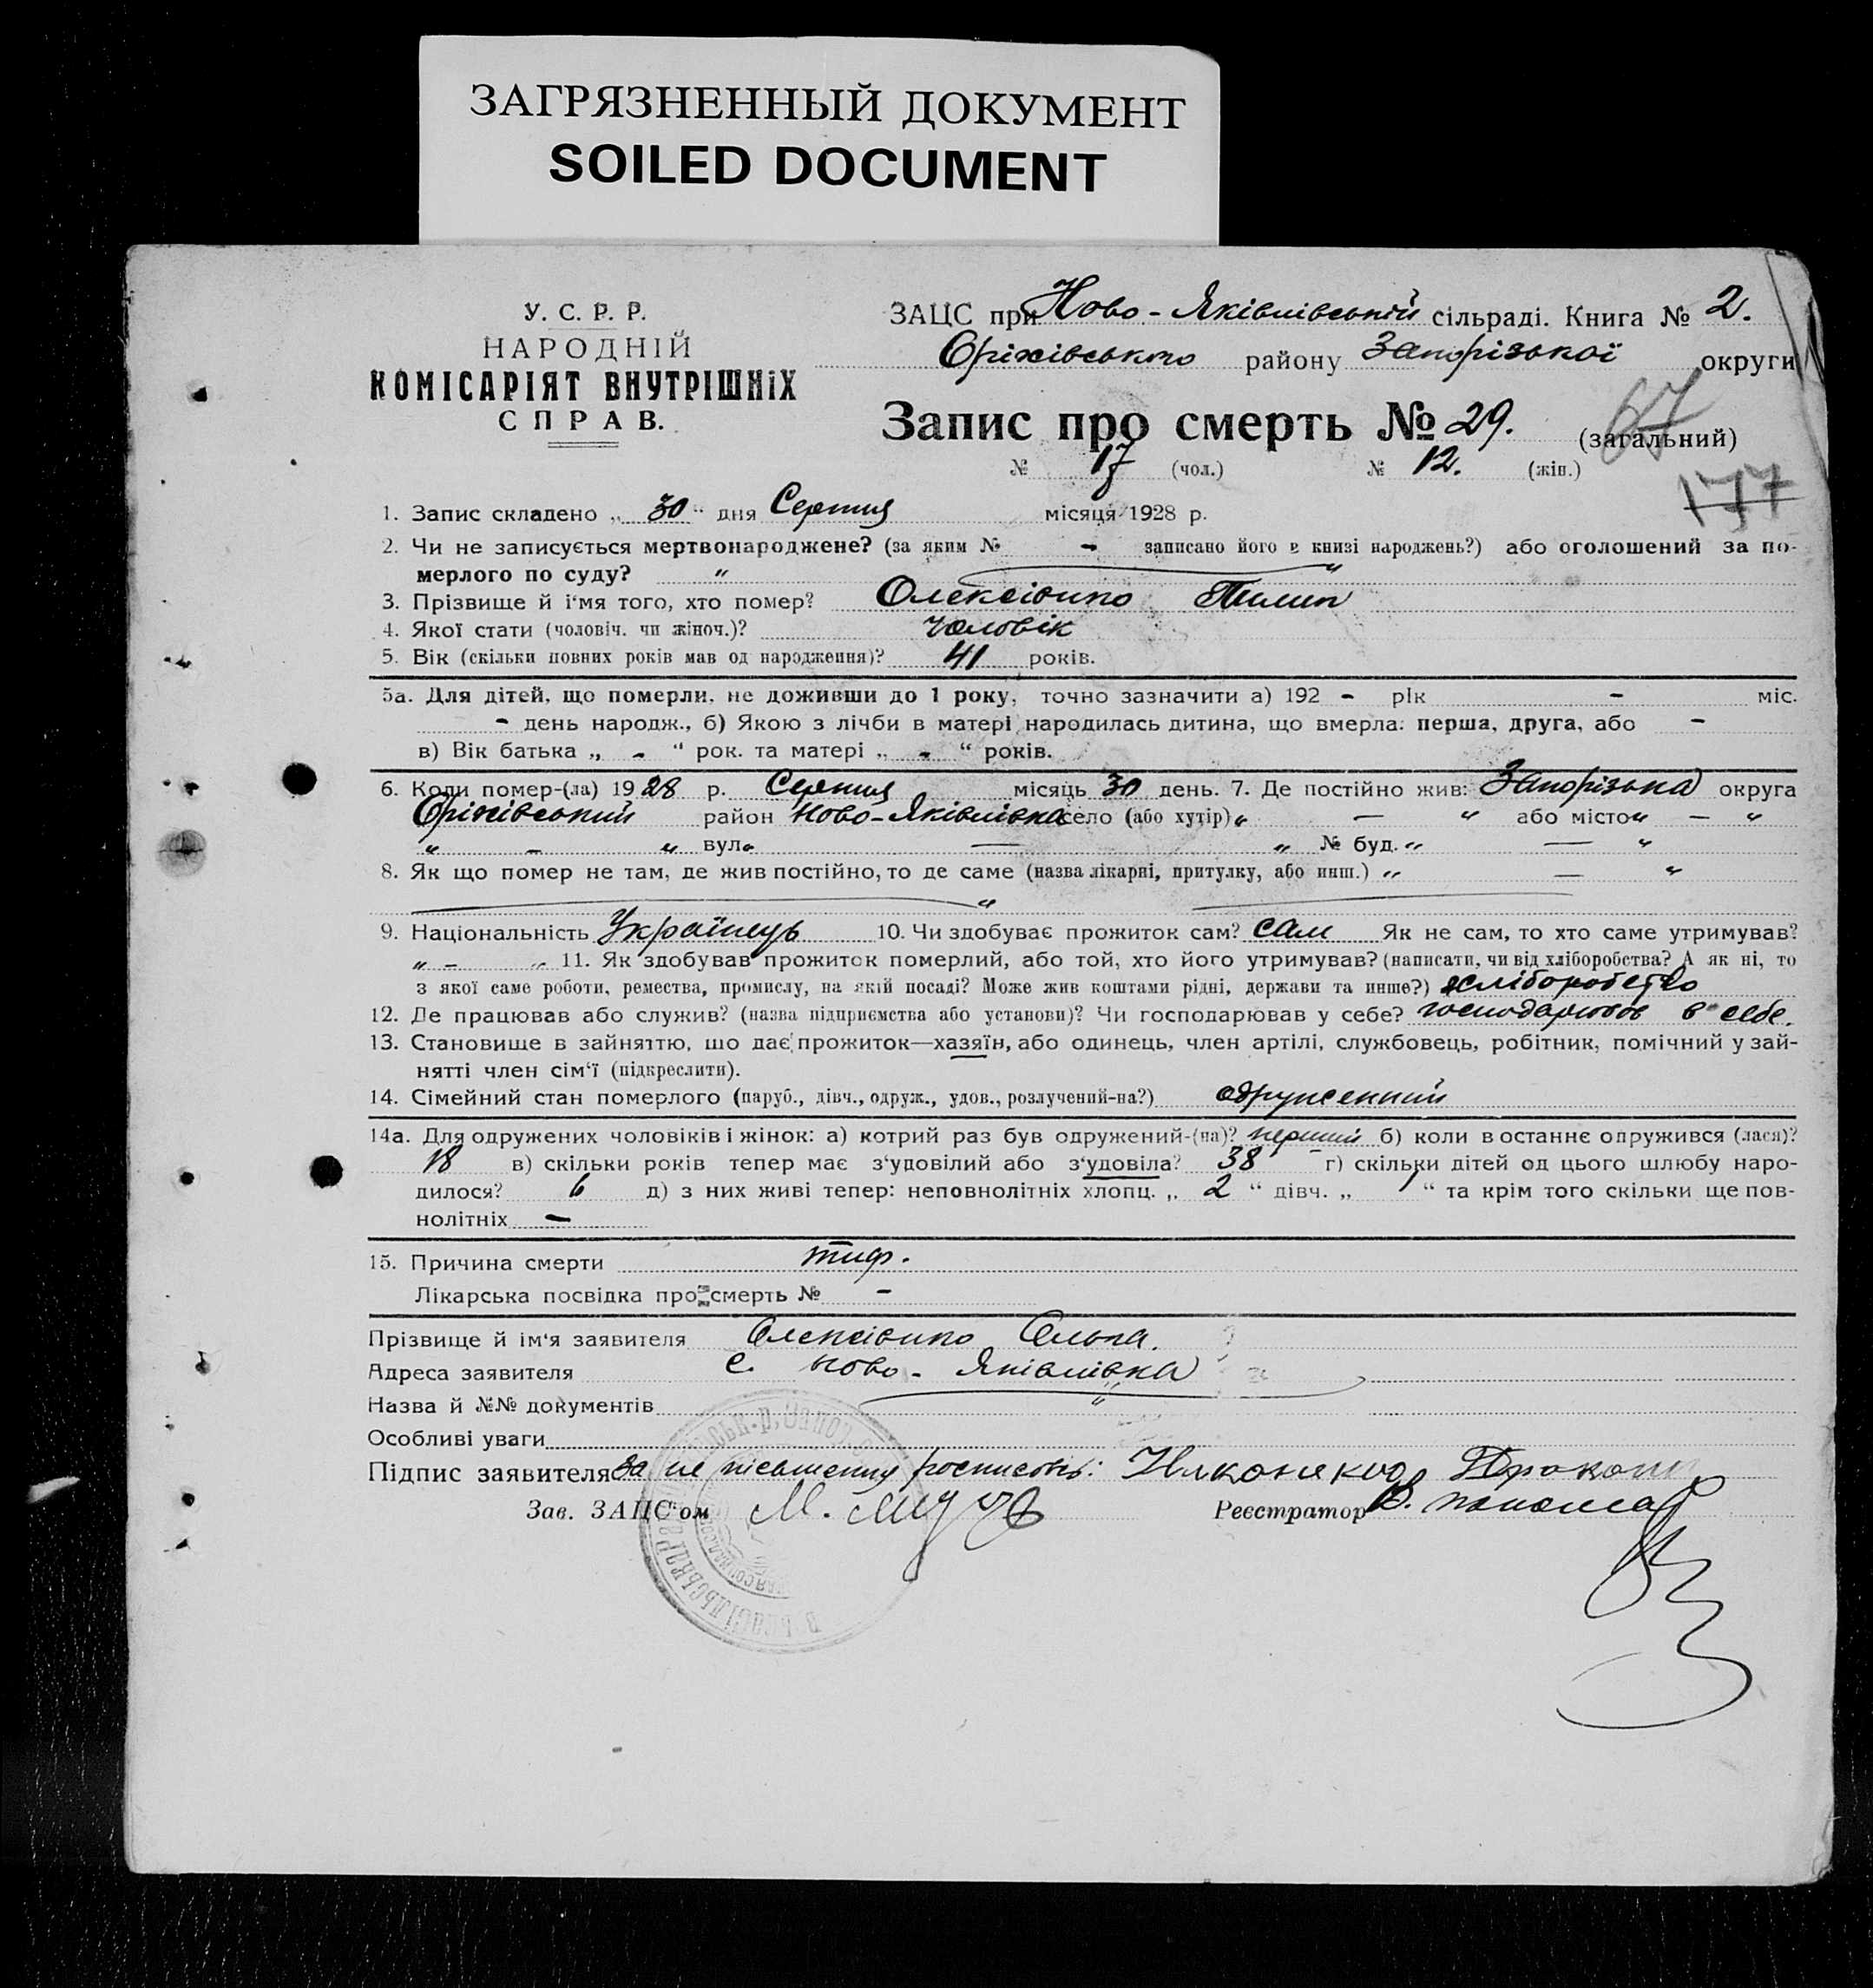 ЗАГРЯЗНЕННЫЙ ДОКУМЕНТ
SOILED DOCUMENT
У. С. Р. Р.
НАРОДНІЙ
КОМІСАРІЯТ ВНУТРІШНІХ
СПРАВ.
ЗАЦС при Ново-Яківлівській сільраді. Книга № 2.
Оріхівського району Запорізької округи
Запис про смерть № 29. (загальний)
67
№ 17 (чол.) № 12. (жін.)
177
1. Запис складено „ 30 “ дня Серпня місяця 1928 р.
2. Чи не записується мертвонароджене? (за яким № - записано його в книзі народжень?) або оголошений за по-
мерлого по суду? "
3. Прізвище й і'мя того, хто помер? Олексієнко Пилип
4. Якої стати (чоловіч. чи жіноч.)? чоловік
5. Вік (скільки повних років мав од народження)? 41 років.
5а. Для дітей, що померли, не доживши до 1 року, точно зазначити а) 192 - рік - міс.
- день народж., б) Якою з лічби в матері народилась дитина, що вмерла: перша, друга, або -
в) Вік батька „ - “ рок. та матері „ - “ років.
6. Коли помер-(ла) 1928 р. Серпня місяць 30 день. 7. Де постійно жив: Запорізька округа
Оріхівський район Ново-Яківлівка село (або хутір) " — " або місто " — "
" - " вул. " — " № буд. " — "
8. Як що помер не там, де жив постійно, то де саме (назва лікарні, притулку, або инш.) " — "
"
9. Національність Українець 10. Чи здобуває прожиток сам? сам Як не сам, то хто саме утримував?
" - " 11. Як здобував прожиток померлий, або той, хто його утримував? (написати, чи від хліборобства? А як ні, то
з якої саме роботи, ремества, промислу, на якій посаді? Може жив коштами рідні, держави та инше?) хліборобство
12. Де працював або служив? (назва підприємства або установи)? Чи господарював у себе? господарював в себе.
13. Становище в зайняттю, що дає прожиток—хазяїн, або одинець, член артілі, службовець, робітник, помічний у зай-
нятті член сім'ї (підкреслити).
14. Сімейний стан померлого (паруб., дівч., одруж., удов., розлучений-на?) одружений
14а. Для одружених чоловіків і жінок: а) котрий раз був одружений-(на)? перший б) коли востаннє одружився (лася)?
18 в) скільки років тепер має з'удовілий або з'удовіла? 38 г) скільки дітей од цього шлюбу наро-
дилося? 6 д) з них живі тепер: неповнолітніх хлопц. „ 2 “ дівч. „ 1 “ та крім того скільки ще пов-
нолітніх -
15. Причина смерти тиф.
Лікарська посвідка про смерть № -
Прізвище й ім'я заявителя Олексієнко Олька.
Адреса заявителя с. Ново-Яківлівка
Назва й №№ документів "
Особливі уваги
Підпис заявителя за не písьменну росписавсь:
Зав. ЗАЦС'ом М.
Реєстратор